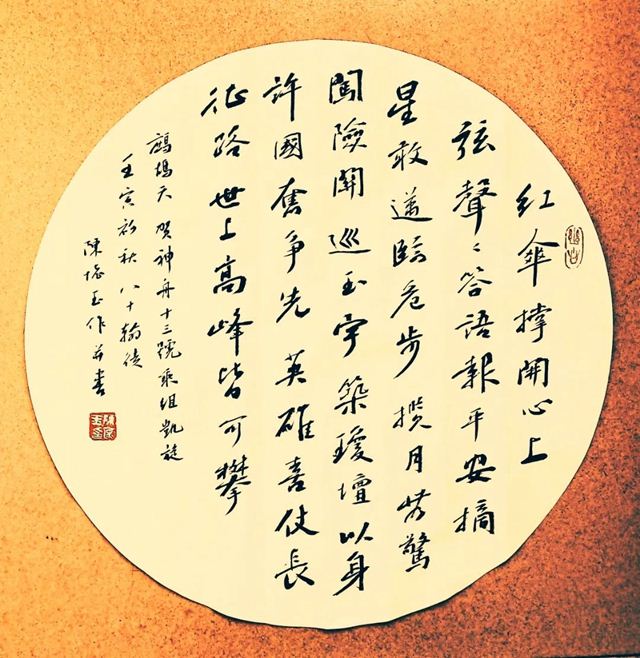 红傘撑開心上
弦聲〻答語報平安摘
星敢邁臨危步攬月驚
闖險關巡玉宇築瓊壇以身
許國奮争先英雄喜仗長
征路世上高峰皆可攀
鷓鴣天 贺神舟十三號乘组凱旋
壬寅初秋八十
陳玉作并書